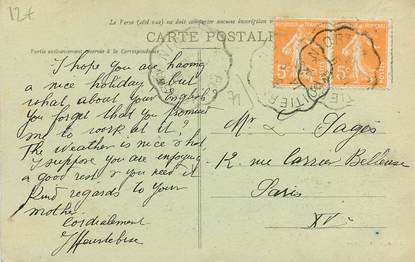 12+
Le Verso (côté vue ne doit comporter aucune inscription
CARTE POSTALE
Partie exclusivement réservée à la Correspondance
I hope you are having
a nice holiday but
what about your english
You forget that you promised
me to work at it?
The weather is nice & hot,
I suppose you are enjoying
a good rest & you need it
Kind regards to your
mother
Cordialement
Mr L. Pagès
12 rue Carrier Belleuse
Paris
XV
5c
5c